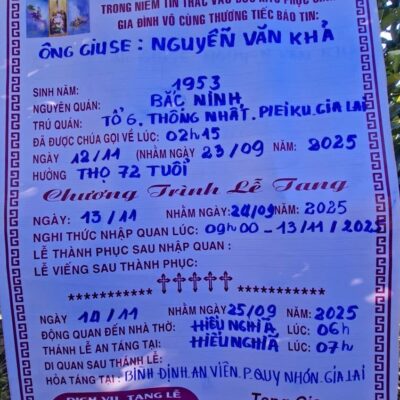 TRONG NIỀM TIN TRÁC VÀO ĐỨC KITÔ PHỤC SINH
GIA ĐÌNH VÔ CÙNG THƯƠNG TIẾC BÁO TIN:
ÔNG GIUSE : NGUYỄN VĂN KHẢ
SINH NĂM: 1953
NGUYÊN QUÁN: BẮC NINH
TRÚ QUÁN: TỔ 6. THỐNG NHẤT. PlEIKU. GIA LAI
ĐÃ ĐƯỢC CHÚA GỌI VỀ LÚC: 02h15
NGÀY 12/11 (NHẰM NGÀY 23/09 NĂM: 2025
HƯỞNG THỌ 72 TUỔI
Chương Trình Lễ Tang
NGÀY: 13/11 NHẰM NGÀY: 24/09 NĂM: 2025
NGHI THỨC NHẬP QUAN LÚC: 09h00 - 13/11/2025
LỄ THÀNH PHỤC SAU NHẬP QUAN :
LỄ VIẾNG SAU THÀNH PHỤC:
NGÀY 14/11 NHẰM NGÀY 25/09 NĂM: 2025
ĐỘNG QUAN ĐẾN NHÀ THỜ: HIẾU NGHĨA LÚC: 06h
THÁNH LỄ AN TÁNG TẠI: HIẾU NGHĨA LÚC: 07h
DI QUAN SAU THÁNH LỄ:
HỎA TÁNG TẠI: BÌNH ĐỊNH. AN VIÊN. P. QUY NHƠN. GIA LAI
DỊCH VỤ TANG LỄ Tang Gia